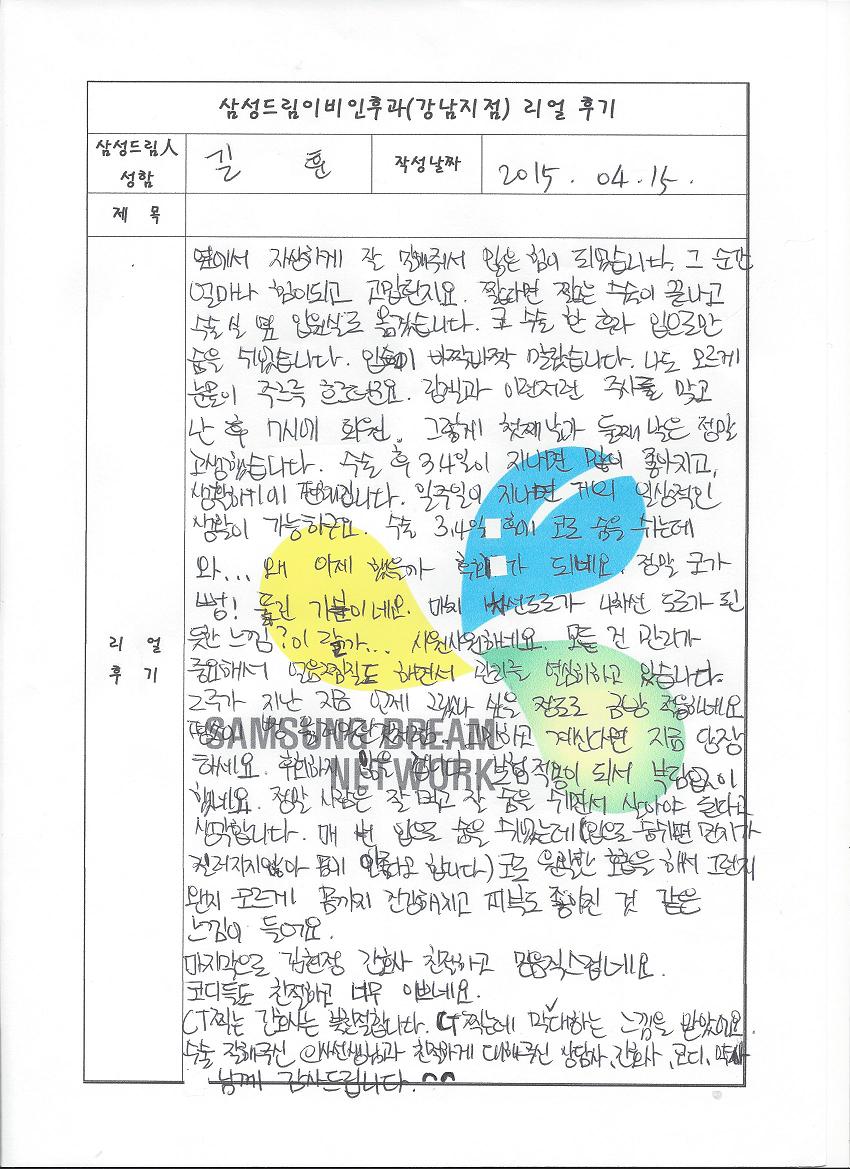 삼성드림이비인후과(강남지점) 리얼 후기
삼성드림人
성함
길 훈
작성날짜
2015. 04. 15.
제 목
옆에서 자상하게 잘 말해줘서 많은 힘이 되었습니다. 그 순간
얼마나 힘이되고 고맙던지요. 짧다면 짧은 수술이 끝나고
수술실 옆 입원실로 옮겼습니다. 코 수술 한 후라 입으로만
숨을 쉬었습니다. 입술이 바짝바짝 말랐습니다. 나도 모르게
눈물이 주르륵 흐르더군요. 링겔과 이런저런 주사를 맞고
난 후 7시에 퇴원. 그렇게 첫째날과 둘째 날은 정말
고생했습니다. 수술 후 3.4일이 지나면 많이 좋아지고,
생활하기에 편해집니다. 일주일이 지나면 거의 일상적인
생활이 가능하군요. 수술 3.4일 후에 코로 숨을 쉬는데
와... 왜 이제 했을까 후회가 되네요. 정말 코가
뻥! 뚫린 기분이네요. 마치 차선도로가 4차선 도로가 된
듯한 느낌?이 랄까... 시원시원하네요. 모든 건 관리가
중요해서 얼음찜질도 하면서 관리를 열심히하고 있습니다.
2주가 지난 지금 언제 그랬나 싶을 정도로 금방 적응하네요
고민하고 계신다면 지금 당장
하세요. 후회하지 않을 겁니다. 보험적용이 되서 부담없이
했네요. 정말 사람은 잘 먹고 잘 숨을 쉬면서 살아야 된다고
생각합니다. 매 번 입으로 숨을 쉬었는데(입으로 숨쉬면 먼지가
걸러지지않아 몸에 안좋다고 합니다.) 코로 원활한 호흡을 해서 그런지
왠지 모르게 몸까지 건강해지고 피부도 좋아진 것 같은
느낌이 들어요.
마지막으로 김현정 간호사 친절하고 믿음직스럽네요.
코디들도 친절하고 너무 이쁘네요.
CT찍는 간호사는 불친절합니다. CT찍는데 막대하는 느낌을 받았어요.
수술 잘해주신 의사선생님과 친절하게 대해주신 상담사, 간호사, 코디, 약사
님께 감사드립니다. ^^
리 얼
후 기
SAMSUNG DREAM
NETWORK